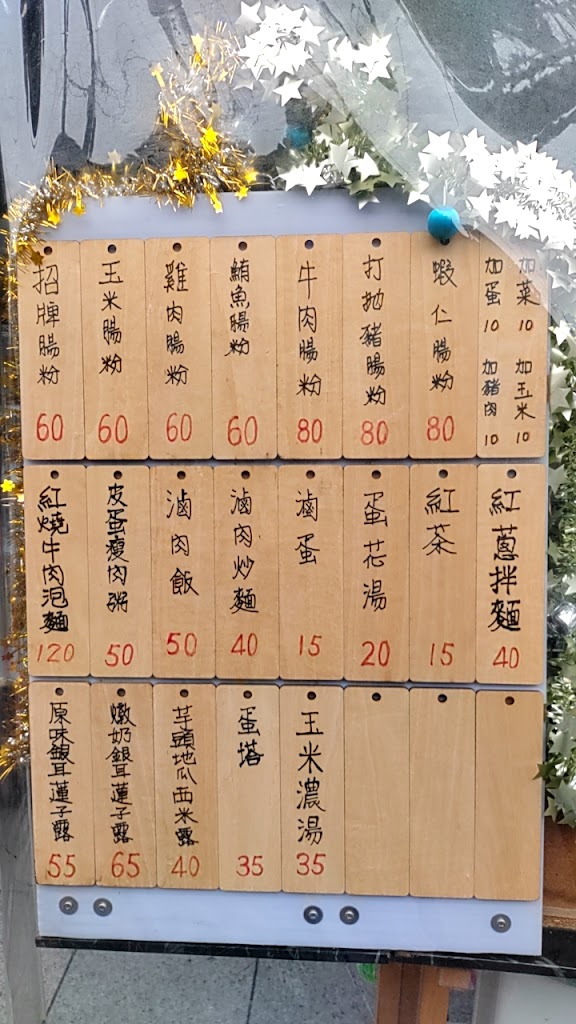 招牌腸粉 60
玉米腸粉 60
雞肉腸粉 60
鮪魚腸粉 60
牛肉腸粉 80
打拋豬腸粉 80
蝦仁腸粉 80
加蛋10
加菜10
加豬肉10
加玉米10
紅燒牛肉泡麵 120
皮蛋瘦肉粥 50
滷肉飯 50
滷肉炒麵 40
滷蛋 15
蛋花湯 20
紅茶 15
紅蔥拌麵 40
原味銀耳蓮子露 55
嫩奶銀耳蓮子露 65
芋頭地瓜西米露 40
蛋塔 35
玉米濃湯 35